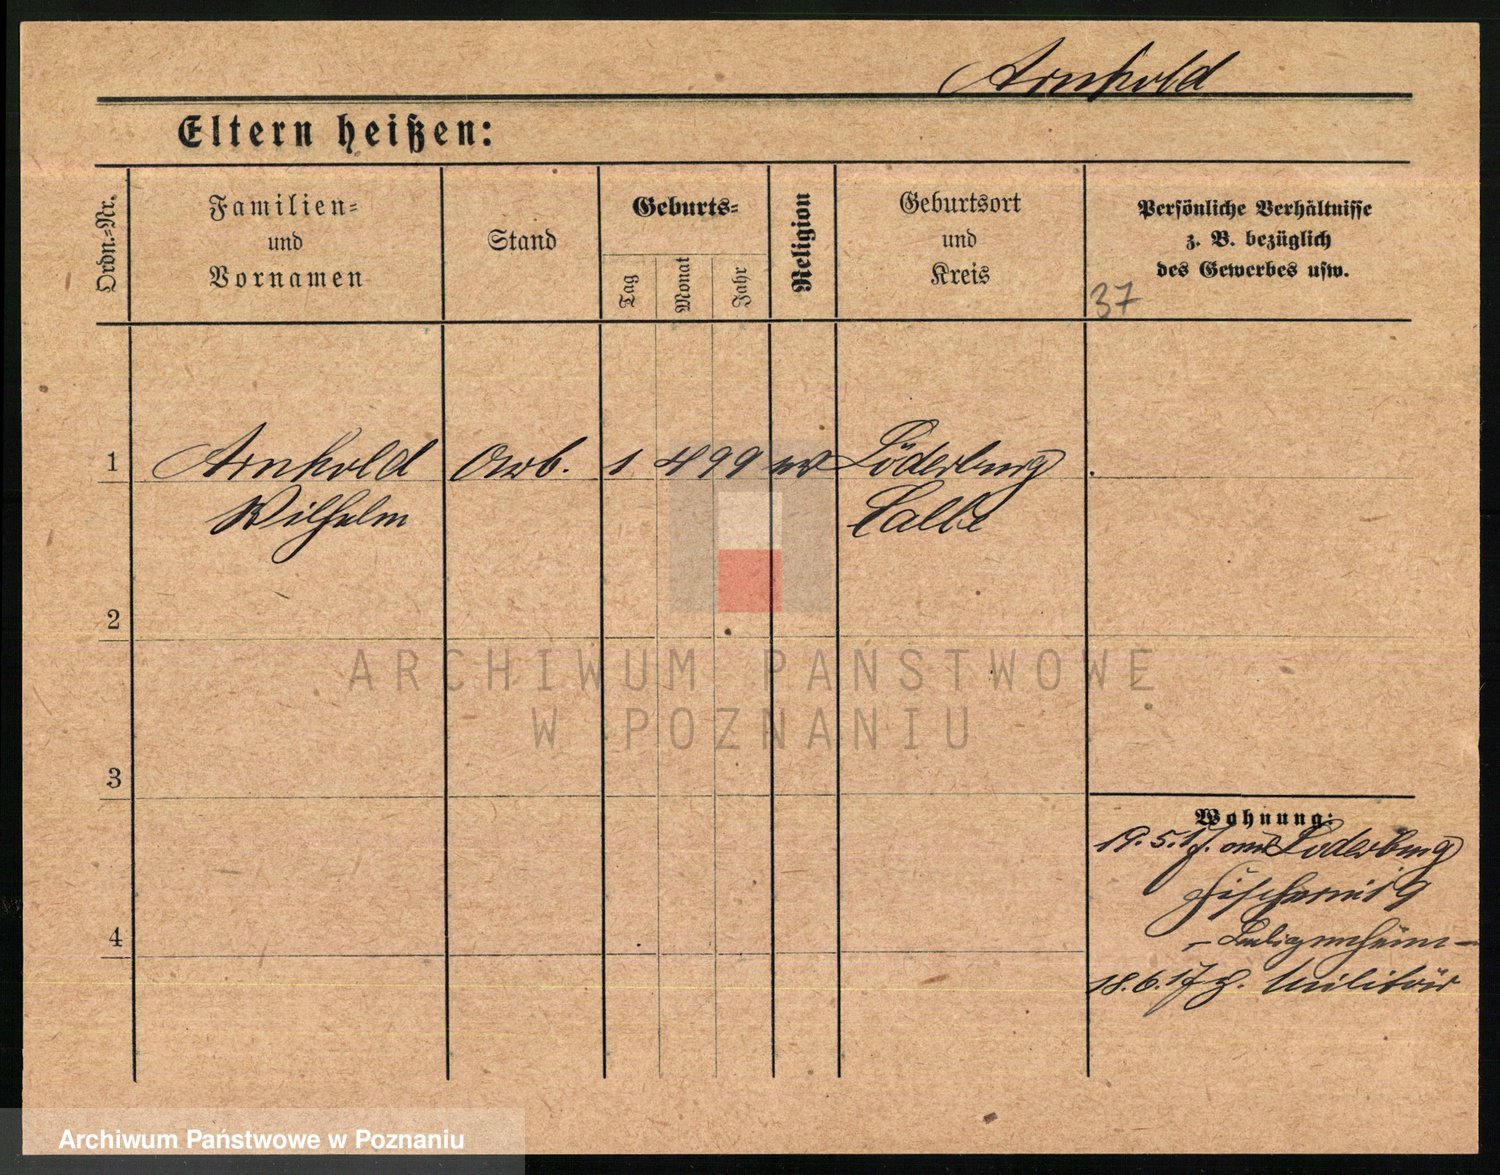 Arnhold
Eltern heißen:
Ordn.-Nr.
Familien-
und
Vornamen
Stand
Geburts-
Tag
Monat
Jahr
Religion
Geburtsort
und
Kreis
Persönliche Verhältnisse
z. B. bezüglich
des Gewerbes usw.
37
1 Arnhold Arb. 1 4 99 ev Löderburg
Wilhelm Calbe
2
3
4
Wohnung:
19.5.17. aus Löderburg
Fischerei 9
18.6.17 z. Militär
ARCHIWUM PAŃSTWOWE
W POZNANIU
Archiwum Państwowe w Poznaniu